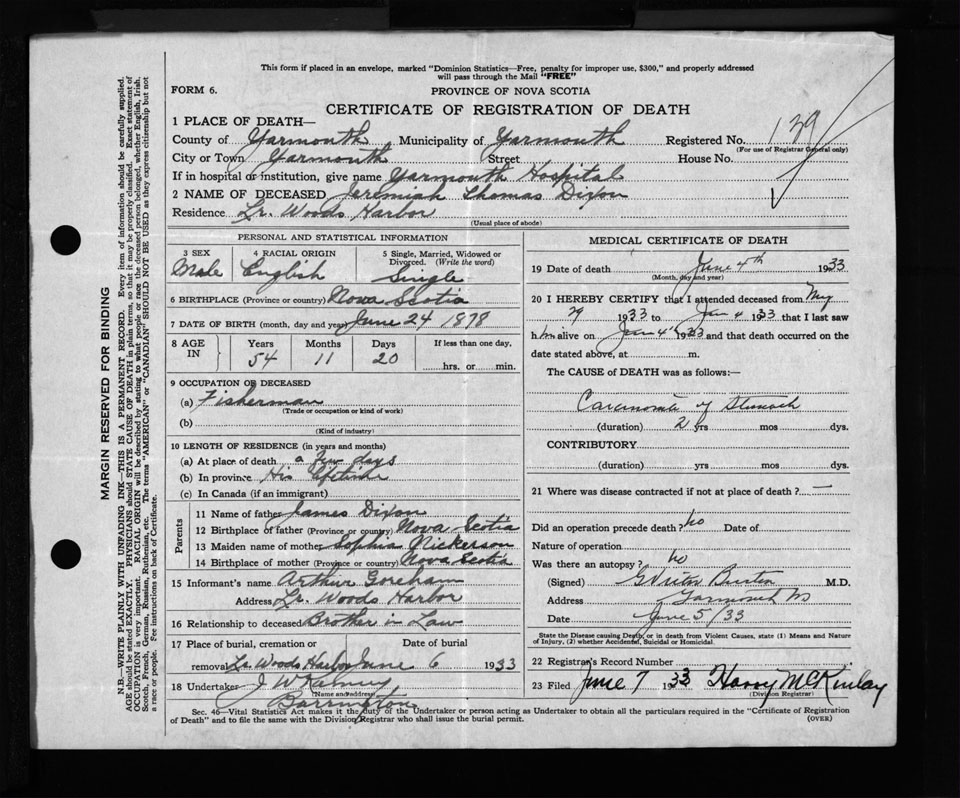 This form if placed in an envelope, marked "Dominion Statistics—Free, penalty for improper use, $300," and properly addressed
will pass through the Mail "FREE"
FORM 6.
PROVINCE OF NOVA SCOTIA
CERTIFICATE OF REGISTRATION OF DEATH
1 PLACE OF DEATH—
County of Yarmouth Municipality of Yarmouth Registered No. 139
(For use of Registrar General only)
City or Town Yarmouth Street House No.
If in hospital or institution, give name Yarmouth Hospital
2 NAME OF DECEASED Jeremiah Thomas Dixon
Residence Lr. Woods Harbor
(Usual place of abode)
PERSONAL AND STATISTICAL INFORMATION
3 SEX 4 RACIAL ORIGIN 5 Single, Married, Widowed or
Divorced. (Write the word)
Male English Single
6 BIRTHPLACE (Province or country) Nova Scotia
7 DATE OF BIRTH (month, day and year) June 24 1878
8 AGE IN Years Months Days If less than one day,
54 11 20 hrs. or min.
9 OCCUPATION OF DECEASED
(a) Fisherman
(Trade or occupation or kind of work)
(b)
(Kind of industry)
10 LENGTH OF RESIDENCE (in years and months)
(a) At place of death a Few days
(b) In province His lifetime
(c) In Canada (if an immigrant)
Parents
11 Name of father James Dixon
12 Birthplace of father (Province or country) Nova Scotia
13 Maiden name of mother Sophia Nickerson
14 Birthplace of mother (Province or country) Nova Scotia
15 Informant's name Arthur Goreham
Address Lr. Woods Harbor
16 Relationship to deceased Brother in Law
17 Place of burial, cremation or Date of burial
removal Lr. Woods Harbor June 6 1933
18 Undertaker J W
(Name and address)
Barrington
MEDICAL CERTIFICATE OF DEATH
19 Date of death June 4th 1933
(Month, day and year)
20 I HEREBY CERTIFY that I attended deceased from My
29 1933 to Jan 4 1933 that I last saw
him alive on Jan 4th 1933 and that death occurred on the
date stated above, at m.
The CAUSE of DEATH was as follows:—
Carcinoma of Stomach
(duration) 2 yrs mos dys.
CONTRIBUTORY
(duration) yrs mos dys.
21 Where was disease contracted if not at place of death? —
Did an operation precede death? no Date of
Nature of operation
Was there an autopsy? no
(Signed) G Victor Burton M.D.
Address Yarmouth NS
Date June 5/33
State the Disease causing Death, or in death from Violent Causes, state (1) Means and Nature
of Injury, (2) whether Accidental, Suicidal or Homicidal.
22 Registrar's Record Number
23 Filed June 7 1933 Harry McKinlay
(Division Registrar)
Sec. 46—Vital Statistics Act makes it the duty of the Undertaker or person acting as Undertaker to obtain all the particulars required in the "Certificate of Registration
of Death" and to file the same with the Division Registrar who shall issue the burial permit. (OVER)
MARGIN RESERVED FOR BINDING
N.B.—WRITE PLAINLY WITH UNFADING INK—THIS IS A PERMANENT RECORD. Every item of information should be carefully supplied.
AGE should be stated EXACTLY. PHYSICIANS should STATE CAUSE OF DEATH in plain terms, so that it may be properly classified. Exact statement of
OCCUPATION is very important. RACIAL ORIGIN will be described by stating to what people or race the deceased person belonged, whether English, Irish,
Scotch, French, German, Russian, Ruthenian, etc. The terms "AMERICAN" or "CANADIAN" SHOULD NOT BE USED as they express citizenship but not
a race or people. See instructions on back of Certificate.